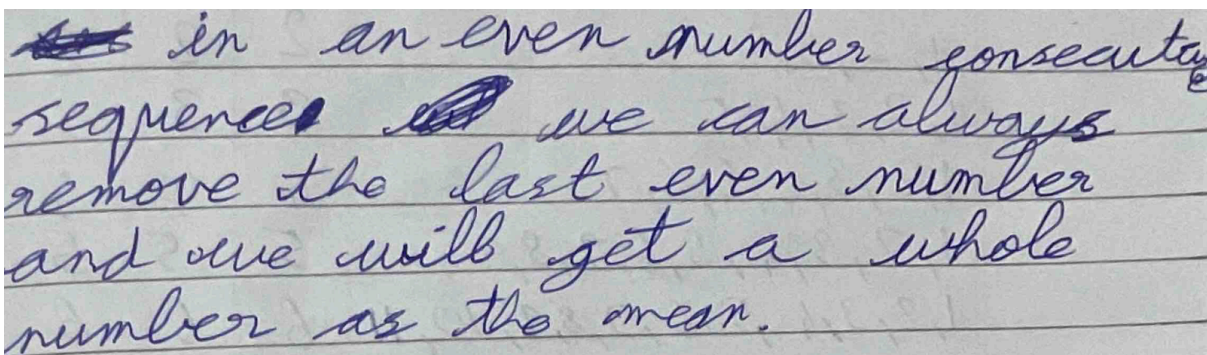 in an even number consecutive
sequence we can always
remove the last even number
and we will get a whole
number as the mean.